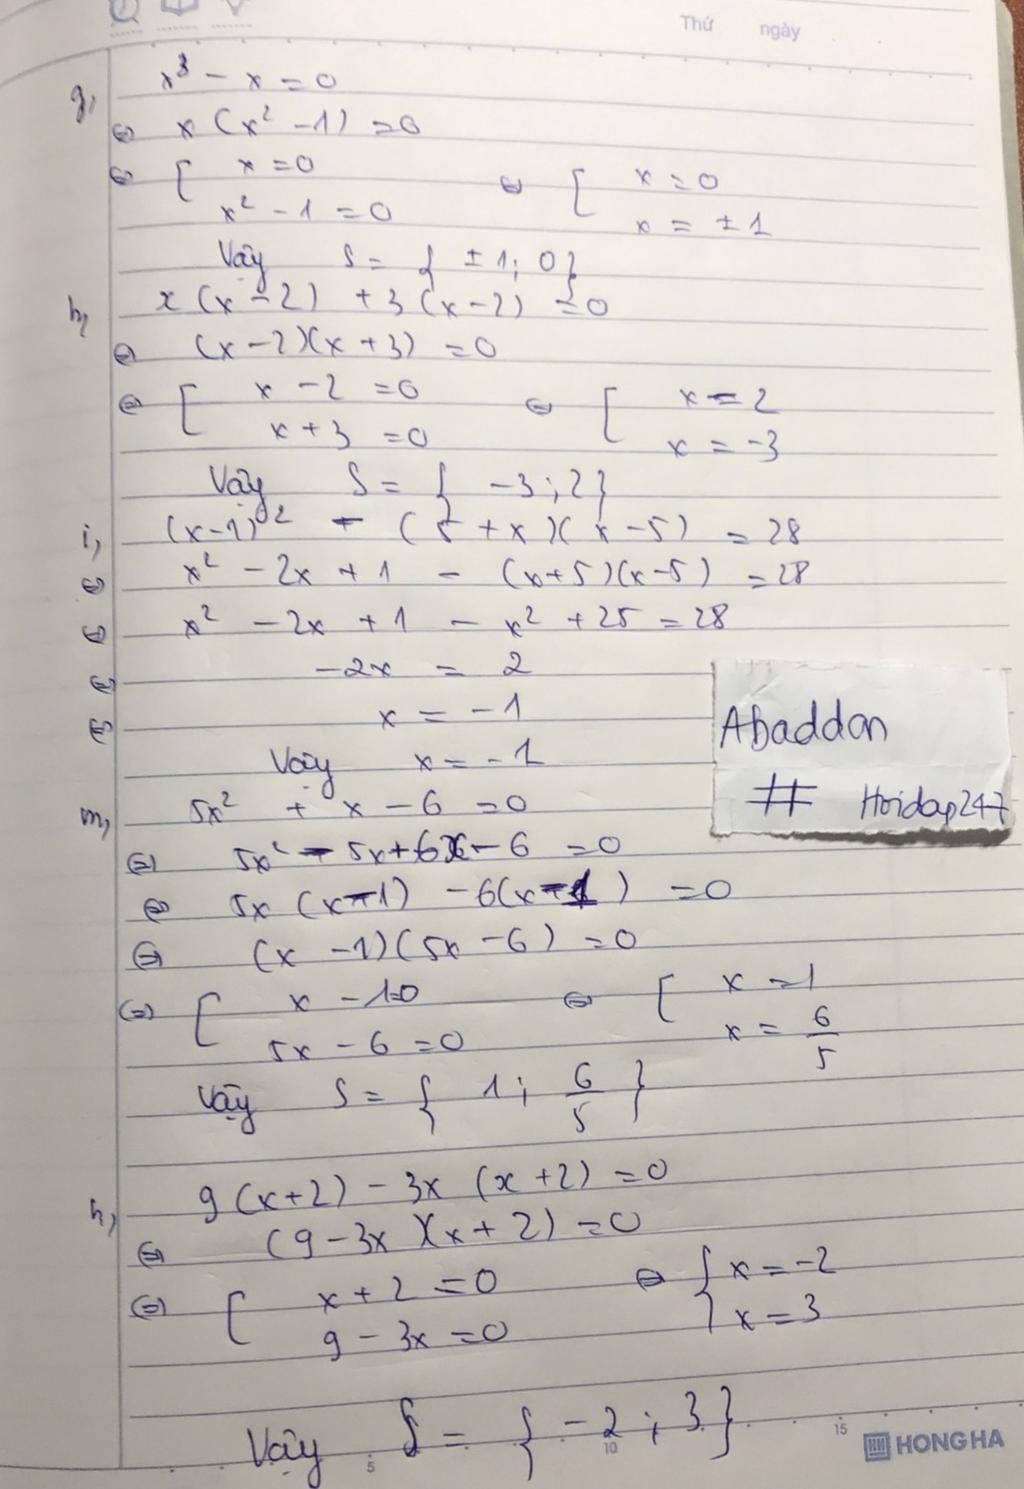 Thứ ngày
g, x³ - x = 0
⇔ x (x² - 1) = 0
⇔ [ x = 0 ⇔ [ x = 0
x² - 1 = 0 x = ± 1
Vậy S = { ± 1; 0}
h, x (x - 2) + 3 (x - 2) = 0
⇔ (x - 2)(x + 3) = 0
⇔ [ x - 2 = 0 ⇔ [ x = 2
x + 3 = 0 x = -3
Vậy S = { -3 ; 2}
i, (x - 1)² - (5 + x)(x - 5) = 28
⇔ x² - 2x + 1 - (x + 5)(x - 5) = 28
⇔ x² - 2x + 1 - x² + 25 = 28
⇔ -2x = 2
⇔ x = -1
Vậy x = -1
Abaddon
# Hoidap247
m, 5x² + x - 6 = 0
⇔ 5x² - 5x + 6x - 6 = 0
⇔ 5x (x - 1) - 6(x - 1) = 0
⇔ (x - 1)(5x - 6) = 0
⇔ [ x - 1=0 ⇔ [ x = 1
5x - 6 = 0 x = 6/5
Vậy S = { 1 ; 6/5 }
n, 9 (x + 2) - 3x (x + 2) = 0
⇔ (9 - 3x)(x + 2) = 0
⇔ [ x + 2 = 0 ⇔ { x = -2
9 - 3x = 0 x = 3
Vậy S = { -2 ; 3 }
5 10 15
HONG HA